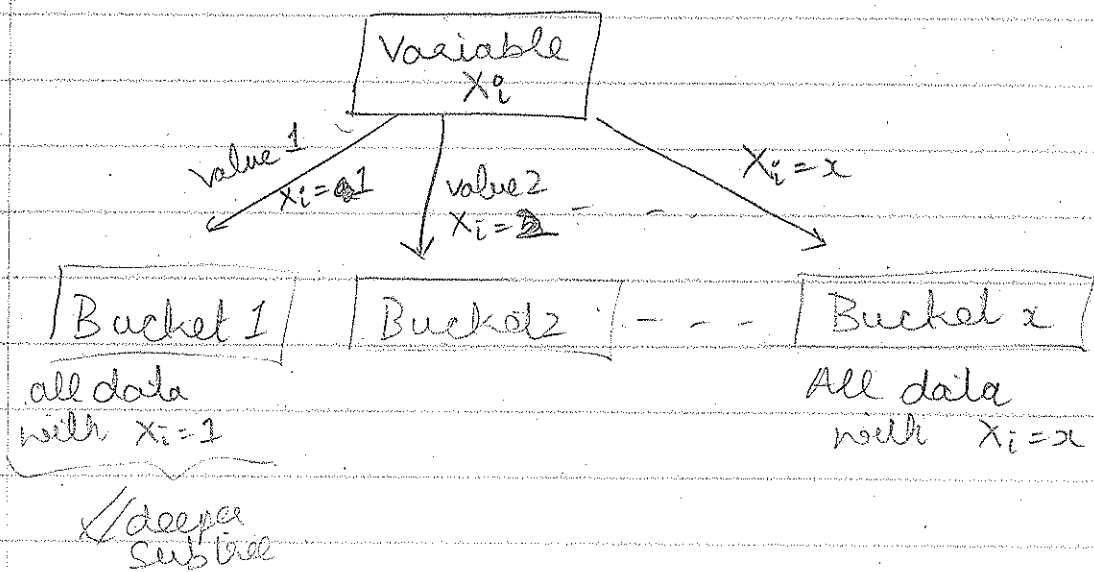 Variable
Xi
value 1
Xi = 1
value 2
Xi = 2
- - -
Xi = x
Bucket 1
Bucket 2
- - -
Bucket x
all data
with Xi = 1
All data
with Xi = x
deeper
subtree